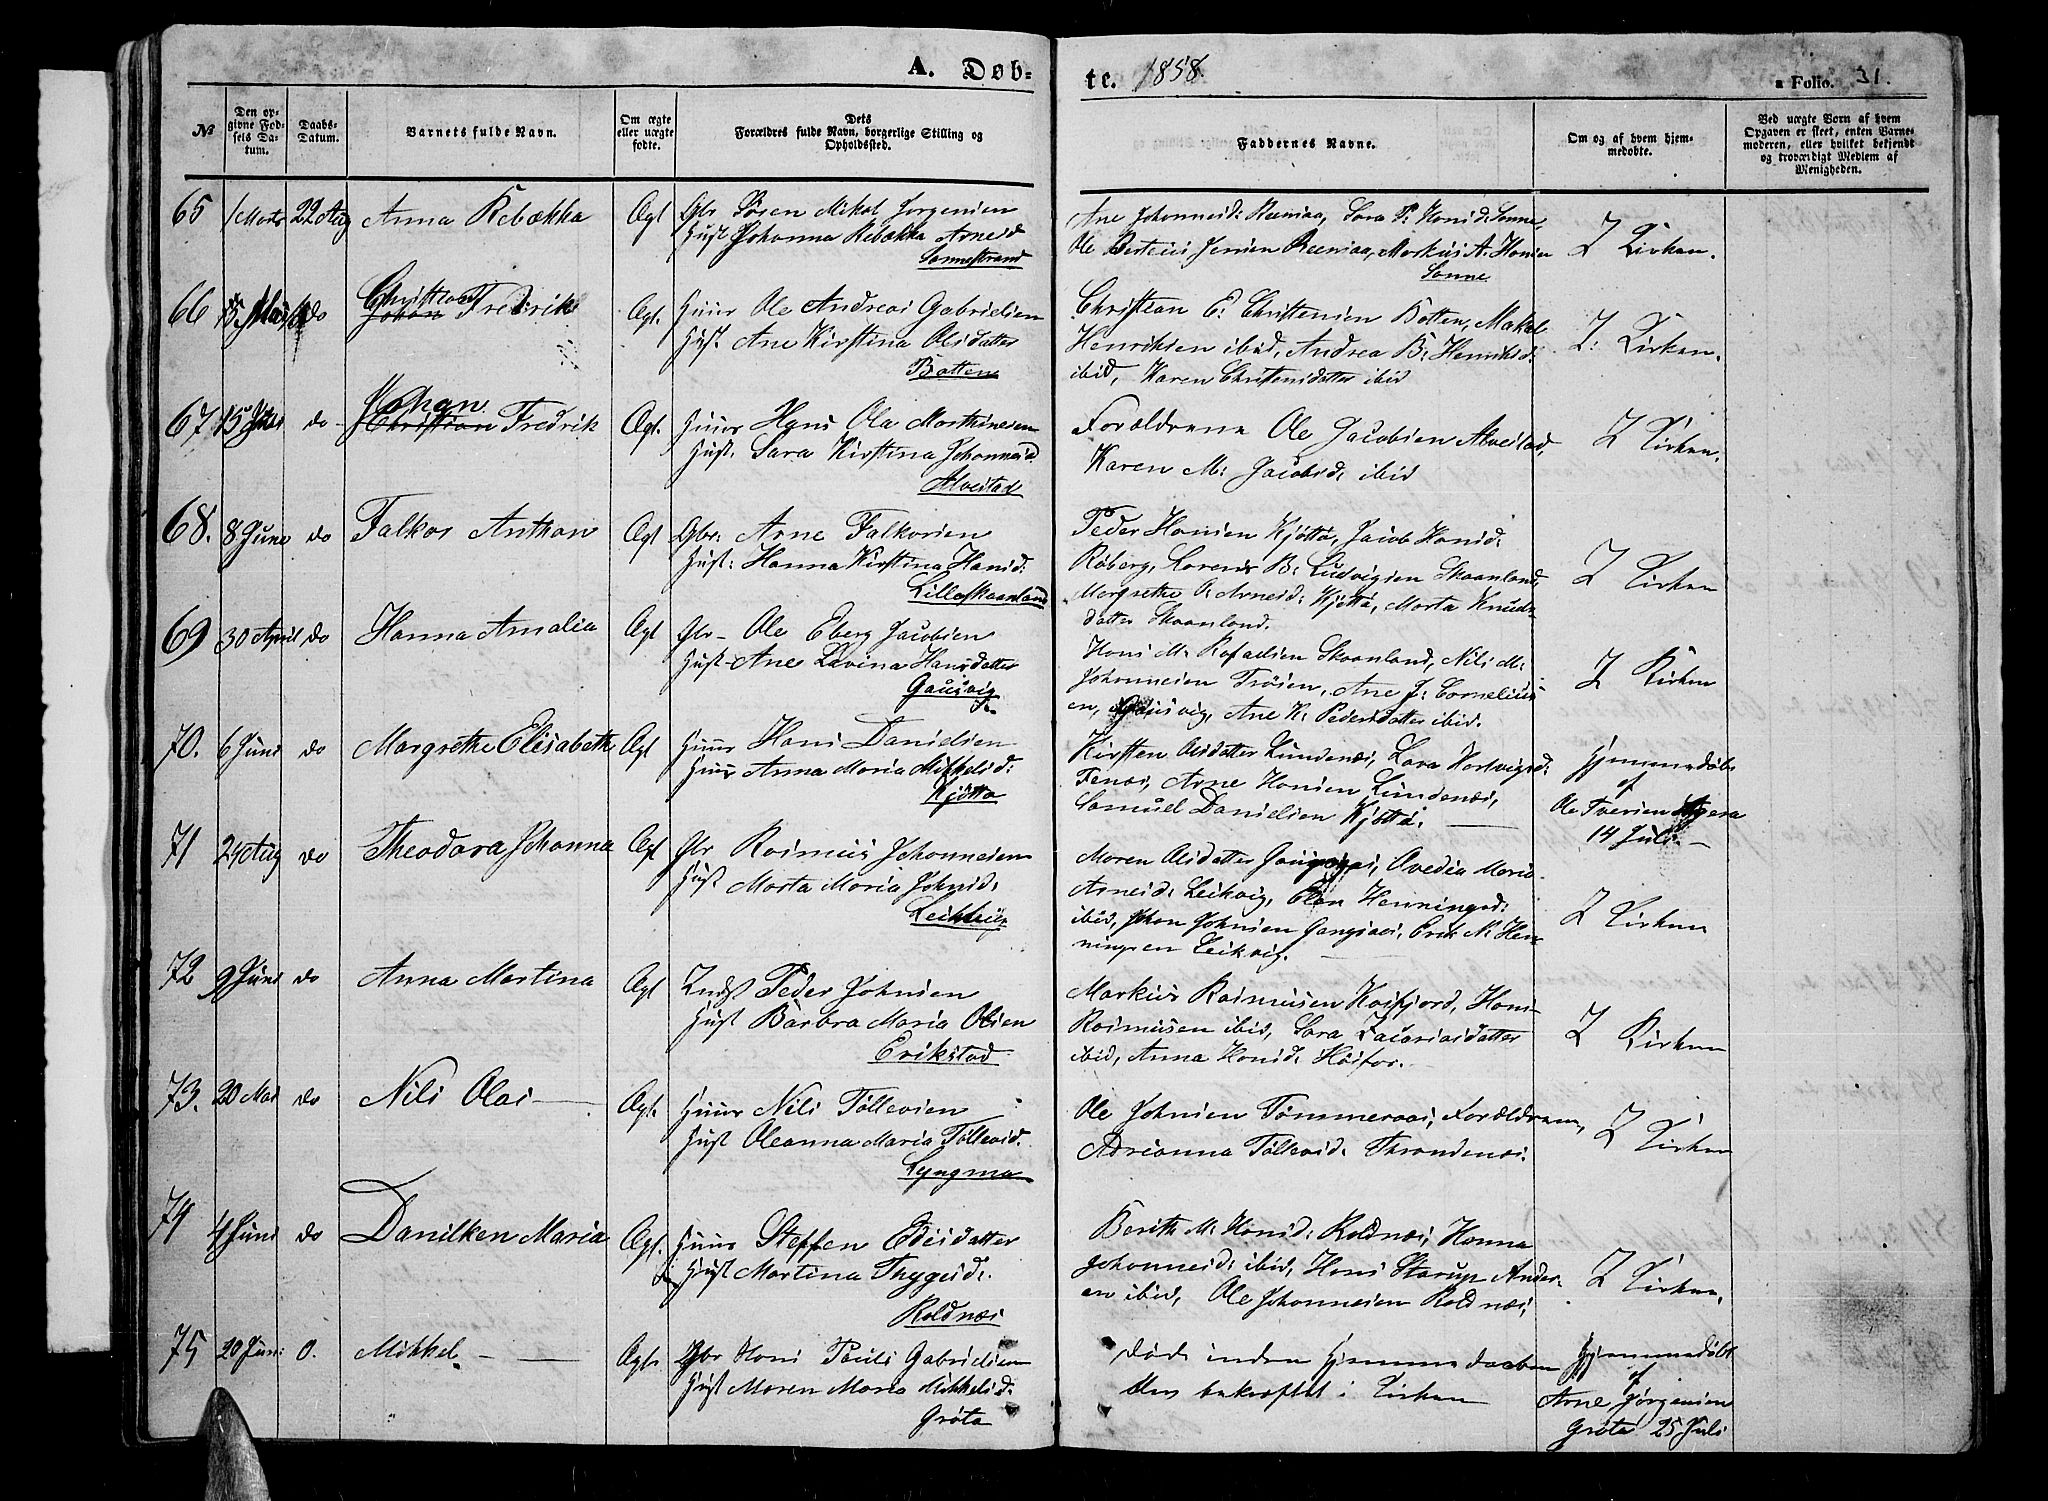 A. Døb-
te. 1858.
a Folio. 31.
№
Den opgivne Fødsels Datum.
Daabs-Datum.
Varnets fulde Navn.
Om ægte eller uægte fødte.
Dets Forældres fulde Navn, borgerlige Stilling og Opholdssted.
Faddernes Navne.
Om og af hvem hjemmedøbte.
Ved uægte Børn af hvem Opgaven er skeet, enten Barnemoderen, eller hvilket bekjendt og troværdigt Medlem af Menigheden.
65 1 Marts 22 Aug Anna Rebækka Ægt Gbr Sören Mikal Jörgensen
Hust Johanna Rebækka Arnesd
Sannestrand
Ane Johannesd: Sara P. Hansd: Sanne,
Ole Berteus Jensen Markus A. Hansen
Sanne
I Kirken.
66 15 do Christian Johan Fredrik Ægt. Huusm Ole Andreas Gabrielsen
Hust. Ane Kirstina Olsdatter
Botten
Christian E. Christensen Botten, Mikal
Henriksen ibid, Andrea B: Henriksd:
ibid, Karen Christensdatter ibid
I Kirken.
67 15 do Johan Christian Fredrik Ægt. Huusm Hans Ole Marthinesen
Hust. Sara Kirstina Johannesd
Alvestad
Forældrene Ole Jacobsen Alvestad,
Karen M: Jacobsd: ibid
I Kirken.
68. 8 Juni do Falkor Anthon Ægt Gbr: Arne Falkorsen
Hust: Hanna Kirstina Hansd:
Lilleskaanland
Peder Hansen Kjötta, Jacob Hansd:
Röberg, Lorents B: Ludvigsen Skaanland,
Margrethe O. Arnesd: Kjötta, Marta Knuds-
datter Skaanland.
I Kirken
69 30 April do Hanna Amalia Ægt Gbr Ole Eberg Jacobsen
Hust Ane Lovina Hansdatter
Gausvig
Hans M. Rafaelsen Skaanland, Nils M:
Johannesen Trössen, Ane J: Cornelius-
en, Gausvig, Ane K: Pedersdatter ibid.
I Kirken
70. 6 Juni do Margrethe Elisabeth Ægt Huusm Hans Danielsen
Anna Maria Mikkelsd:
Kjötta
Kirsten Olsdatter Lundenæs, Lava Hartvigsd:
Fenæs, Arne Hansen Lundenæs,
Samuel Danielsen Kjötta.
Hjemmedöbt
af
Ole Iversen
14 Juli
71 24 Aug do Theodora Johanna Ægt Gbr Rasmus Johannesen
Hust Marta Maria Johnsd:
Leikvig
Maren Olsdatter Gangsaas, Ovedia Maria
Arnesd: Leikvig, Elen Henningsd:
ibid, Johan Johnsen Gangsaas, Erik N. Hen-
ningsen Leikvig.
I Kirken
72 9 Juni do Anna Martina Ægt Indst Peder Johnsen
Hust Barbra Maria Olsen
Erikstad
Markus Rasmusen Kasfjord, Hans
Rasmusen ibid, Sara Zacariasdatter
ibid, Anna Hansd: Halsbor.
I Kirken
73. 20 Mai do Nils Olai Ægt. Huusm Nils Töllevsen
Hust Oleanna Maria Töllevsd.
Lyngma
Ole Johnsen Tömmeraas, Forældrene,
Adrianna Töllevsd. Throndenæs.
I Kirken
74 4 Juni do Danilken Maria Ægt. Huusm Steffen Edisdatter
Hust Martina Thygesd:
Roldnæs
Berith M: Hansd: Roldnæs, Hanna
Johannesd: ibid, Hans Starup Anders-
en ibid, Ole Johannesen Roldnæs,
I Kirken.
75 20 Juni 0. Mikkel Ægte Gbr Hans Pauls Gabrielsen
Hust Maren Maria Mikkelsd:
Gröta
Döde inden Hjemmedaaben
blev bekræftet i Kirken
Hjemmedöbt
af
Arne Jörgensen
Gröta 25 Juli